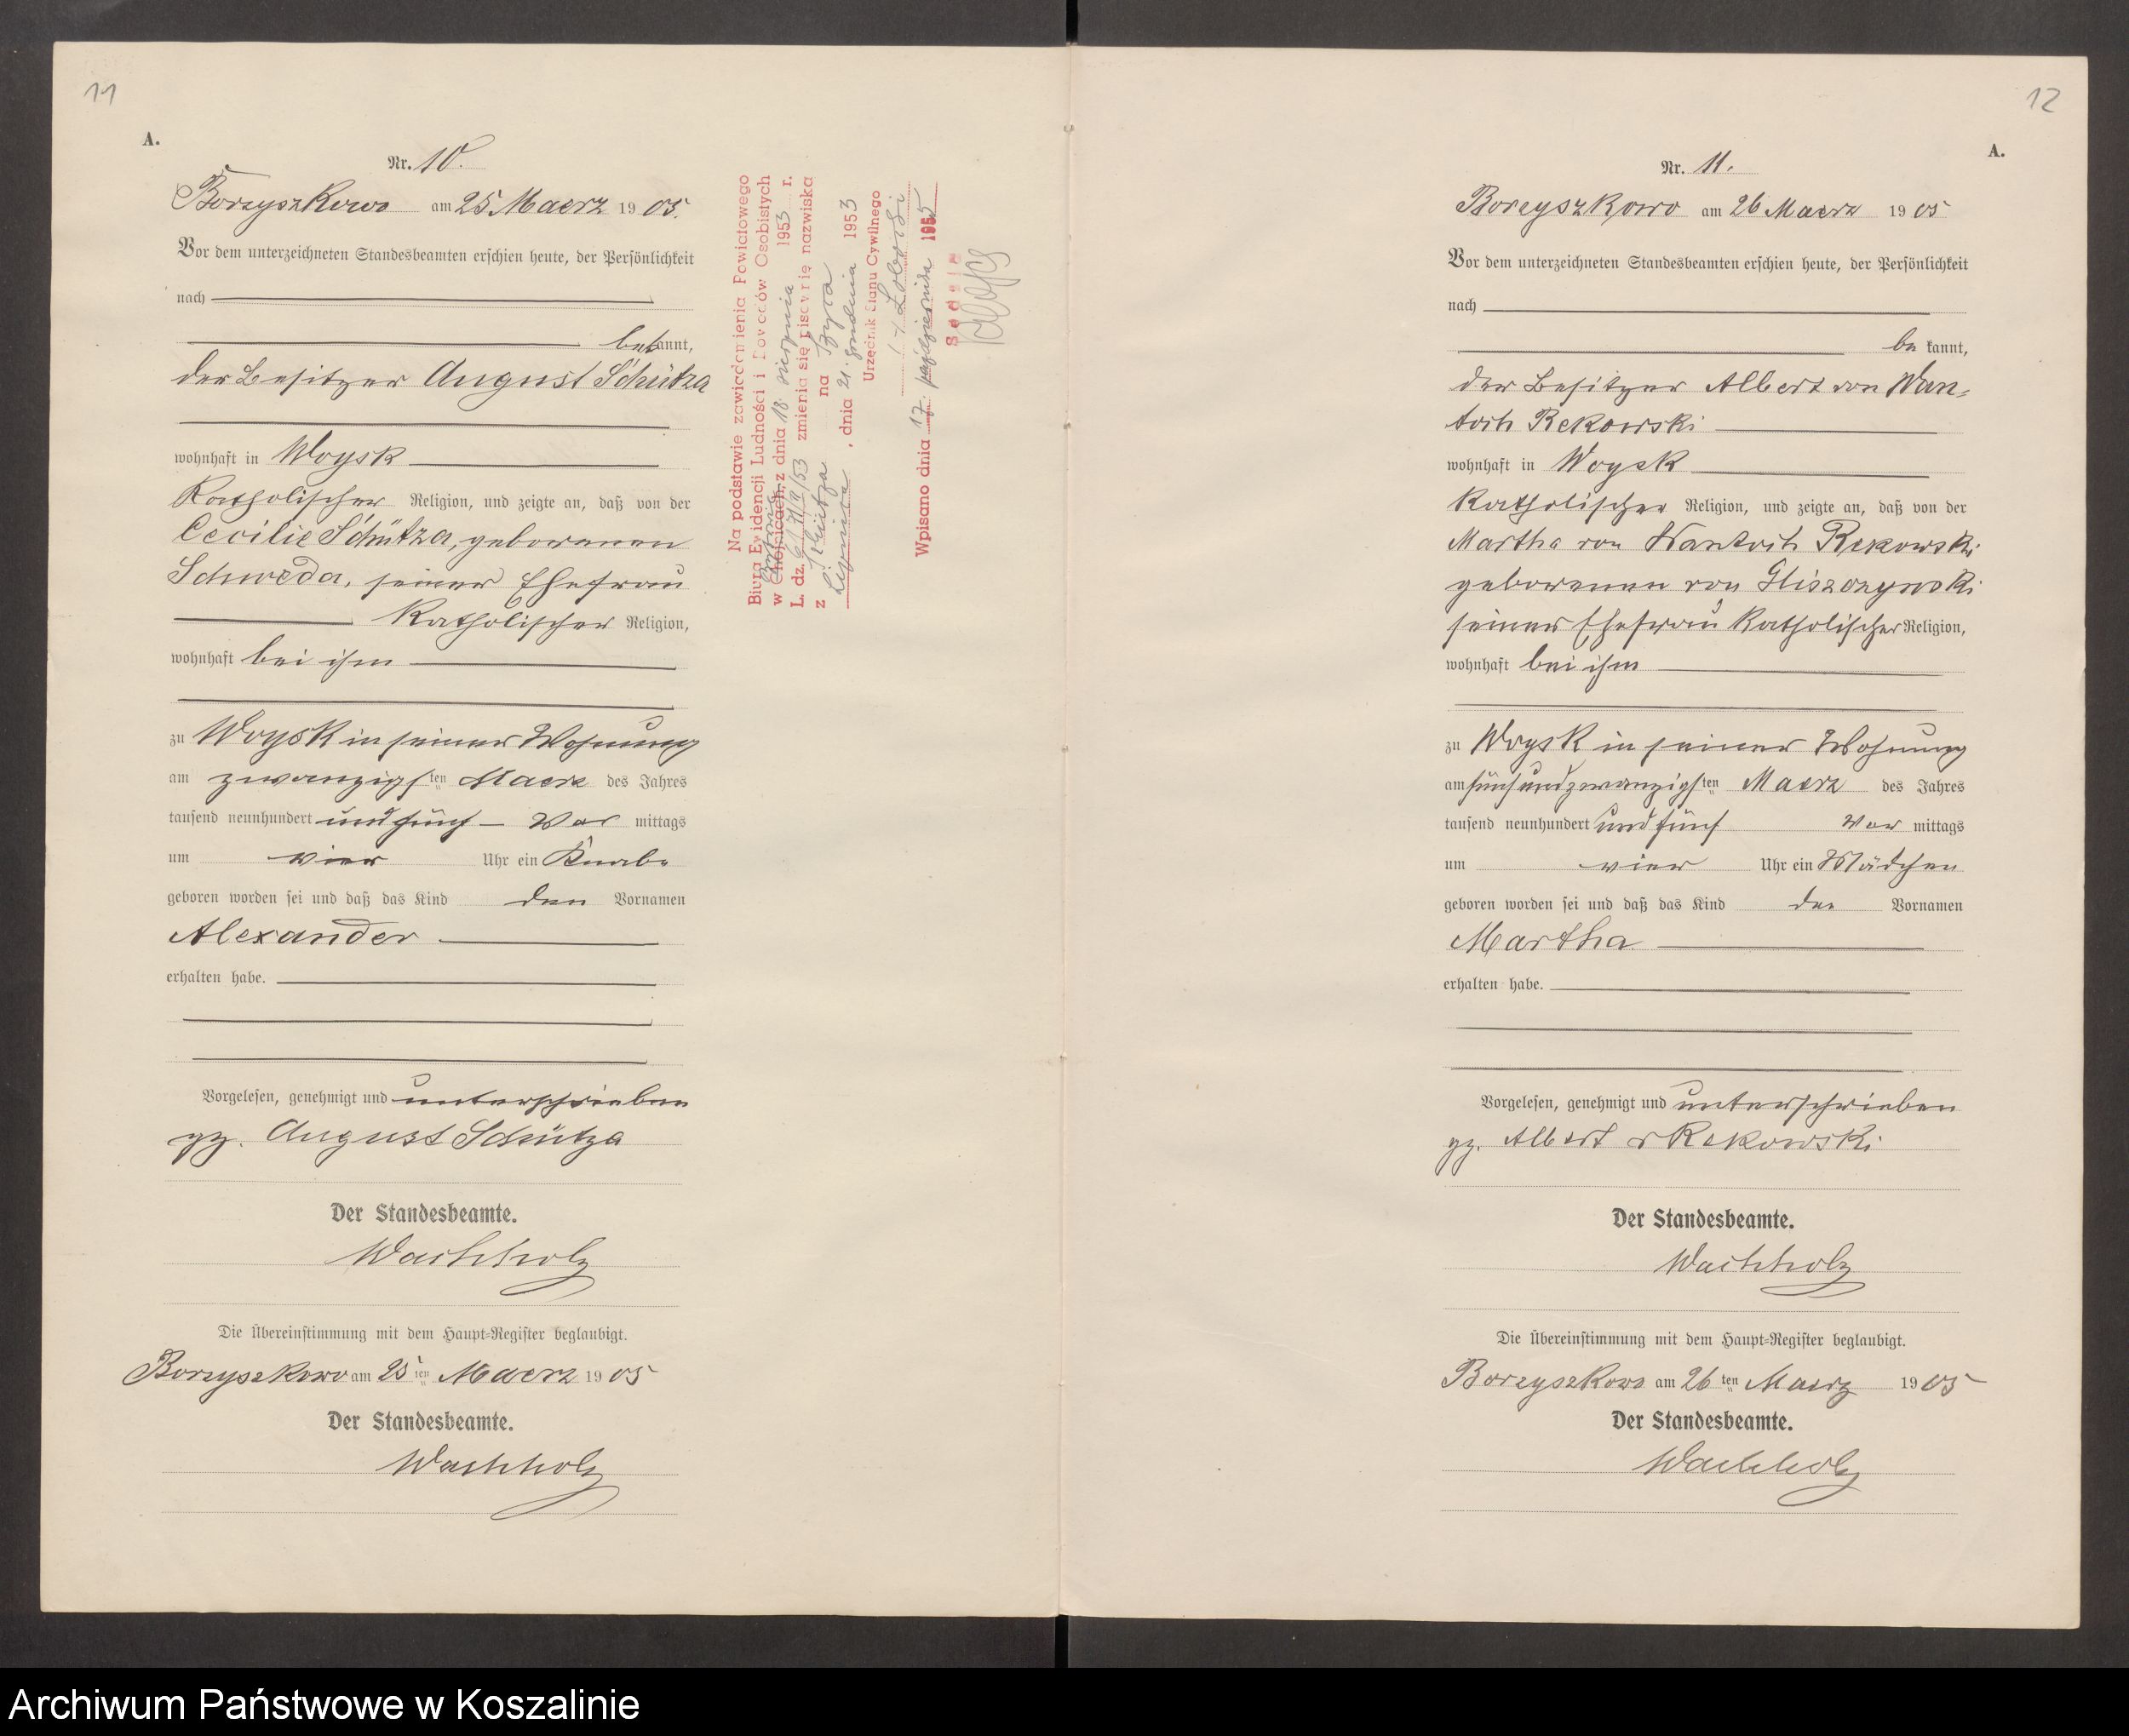 11
A.
Nr. 10.
Borzyszkowo am 25 Maerz 1905.
Vor dem unterzeichneten Standesbeamten erschien heute, der Persönlichkeit
nach
bekannt,
der Besitzer August Schütza
wohnhaft in Woysk
Katholischer Religion, und zeigte an, daß von der
Cecilie Schütza, geborenen
Schweda, seiner Ehefrau
Katholischer Religion,
wohnhaft bei ihm
zu Woysk in seiner Wohnung
am zwanzigsten Maerz des Jahres
tausend neunhundert und fünf Vor mittags
um vier Uhr ein Knabe
geboren worden sei und daß das Kind den Vornamen
Alexander
erhalten habe.
Vorgelesen, genehmigt und unterschrieben
gz. August Schütza
Der Standesbeamte.
Wachholz
Die Übereinstimmung mit dem Haupt-Register beglaubigt.
Borzyszkowo am 25ten Maerz 1905
Der Standesbeamte.
Wachholz
Na podstawie zawiadomienia Powiatowego
Biura Ewidencji Ludności i Dowodów Osobistych
w Chojnicach z dnia 18 sierpnia 1953 r.
L. dz. zmienia się pisownię nazwiska
z Schütza na Szyca
dnia 21 grudnia 1953
Urzędnik Stanu Cywilnego
Wpisano dnia 17 października 1955
12
A.
Nr. 11.
Borzyszkowo am 26 Maerz 1905
Vor dem unterzeichneten Standesbeamten erschien heute, der Persönlichkeit
nach
be kannt,
der Besitzer Albert von Wan-
toch Rekowski
wohnhaft in Woysk
Katholischer Religion, und zeigte an, daß von der
Martha von Wantoch Rekowski
geborenen von Gliszczynski
seiner Ehefrau Katholischer Religion,
wohnhaft bei ihm
zu Woysk in seiner Wohnung
am fünfundzwanzigsten Maerz des Jahres
tausend neunhundert und fünf Vor mittags
um vier Uhr ein Mädchen
geboren worden sei und daß das Kind den Vornamen
Martha
erhalten habe.
Vorgelesen, genehmigt und unterschrieben
gz. Albert v Rekowski
Der Standesbeamte.
Wachholz
Die Übereinstimmung mit dem Haupt-Register beglaubigt.
Borzyszkowo am 26ten Maerz 1905
Der Standesbeamte.
Wachholz
Archiwum Państwowe w Koszalinie